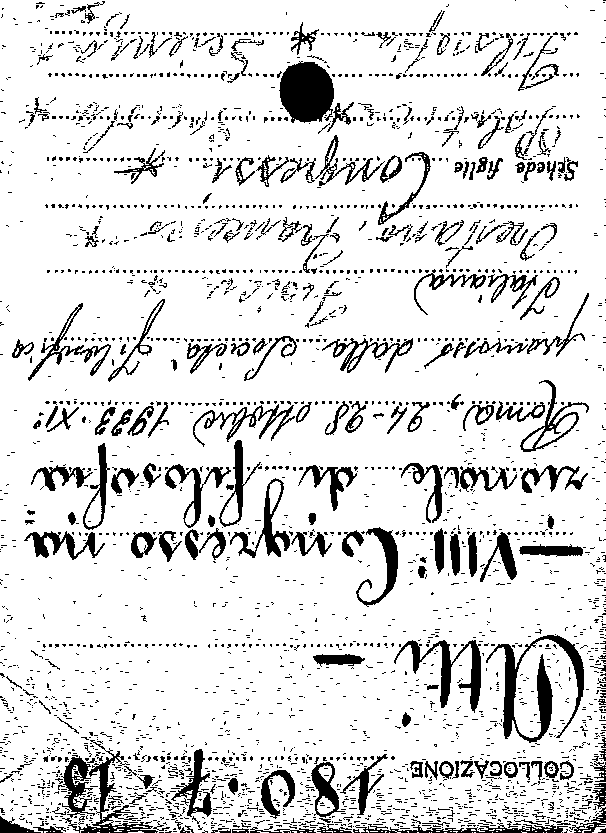 COLLOCAZIONE 180.7.13
Atti. —
— VIII: Congresso na=
zionale di filosofia
Roma, 24-28 ottobre 1933.XIº
promosso dalla Società filosofica
Italiana)
Orestano, Francesco *
Schede figlie Congressi *
Filosofia * Scienza *